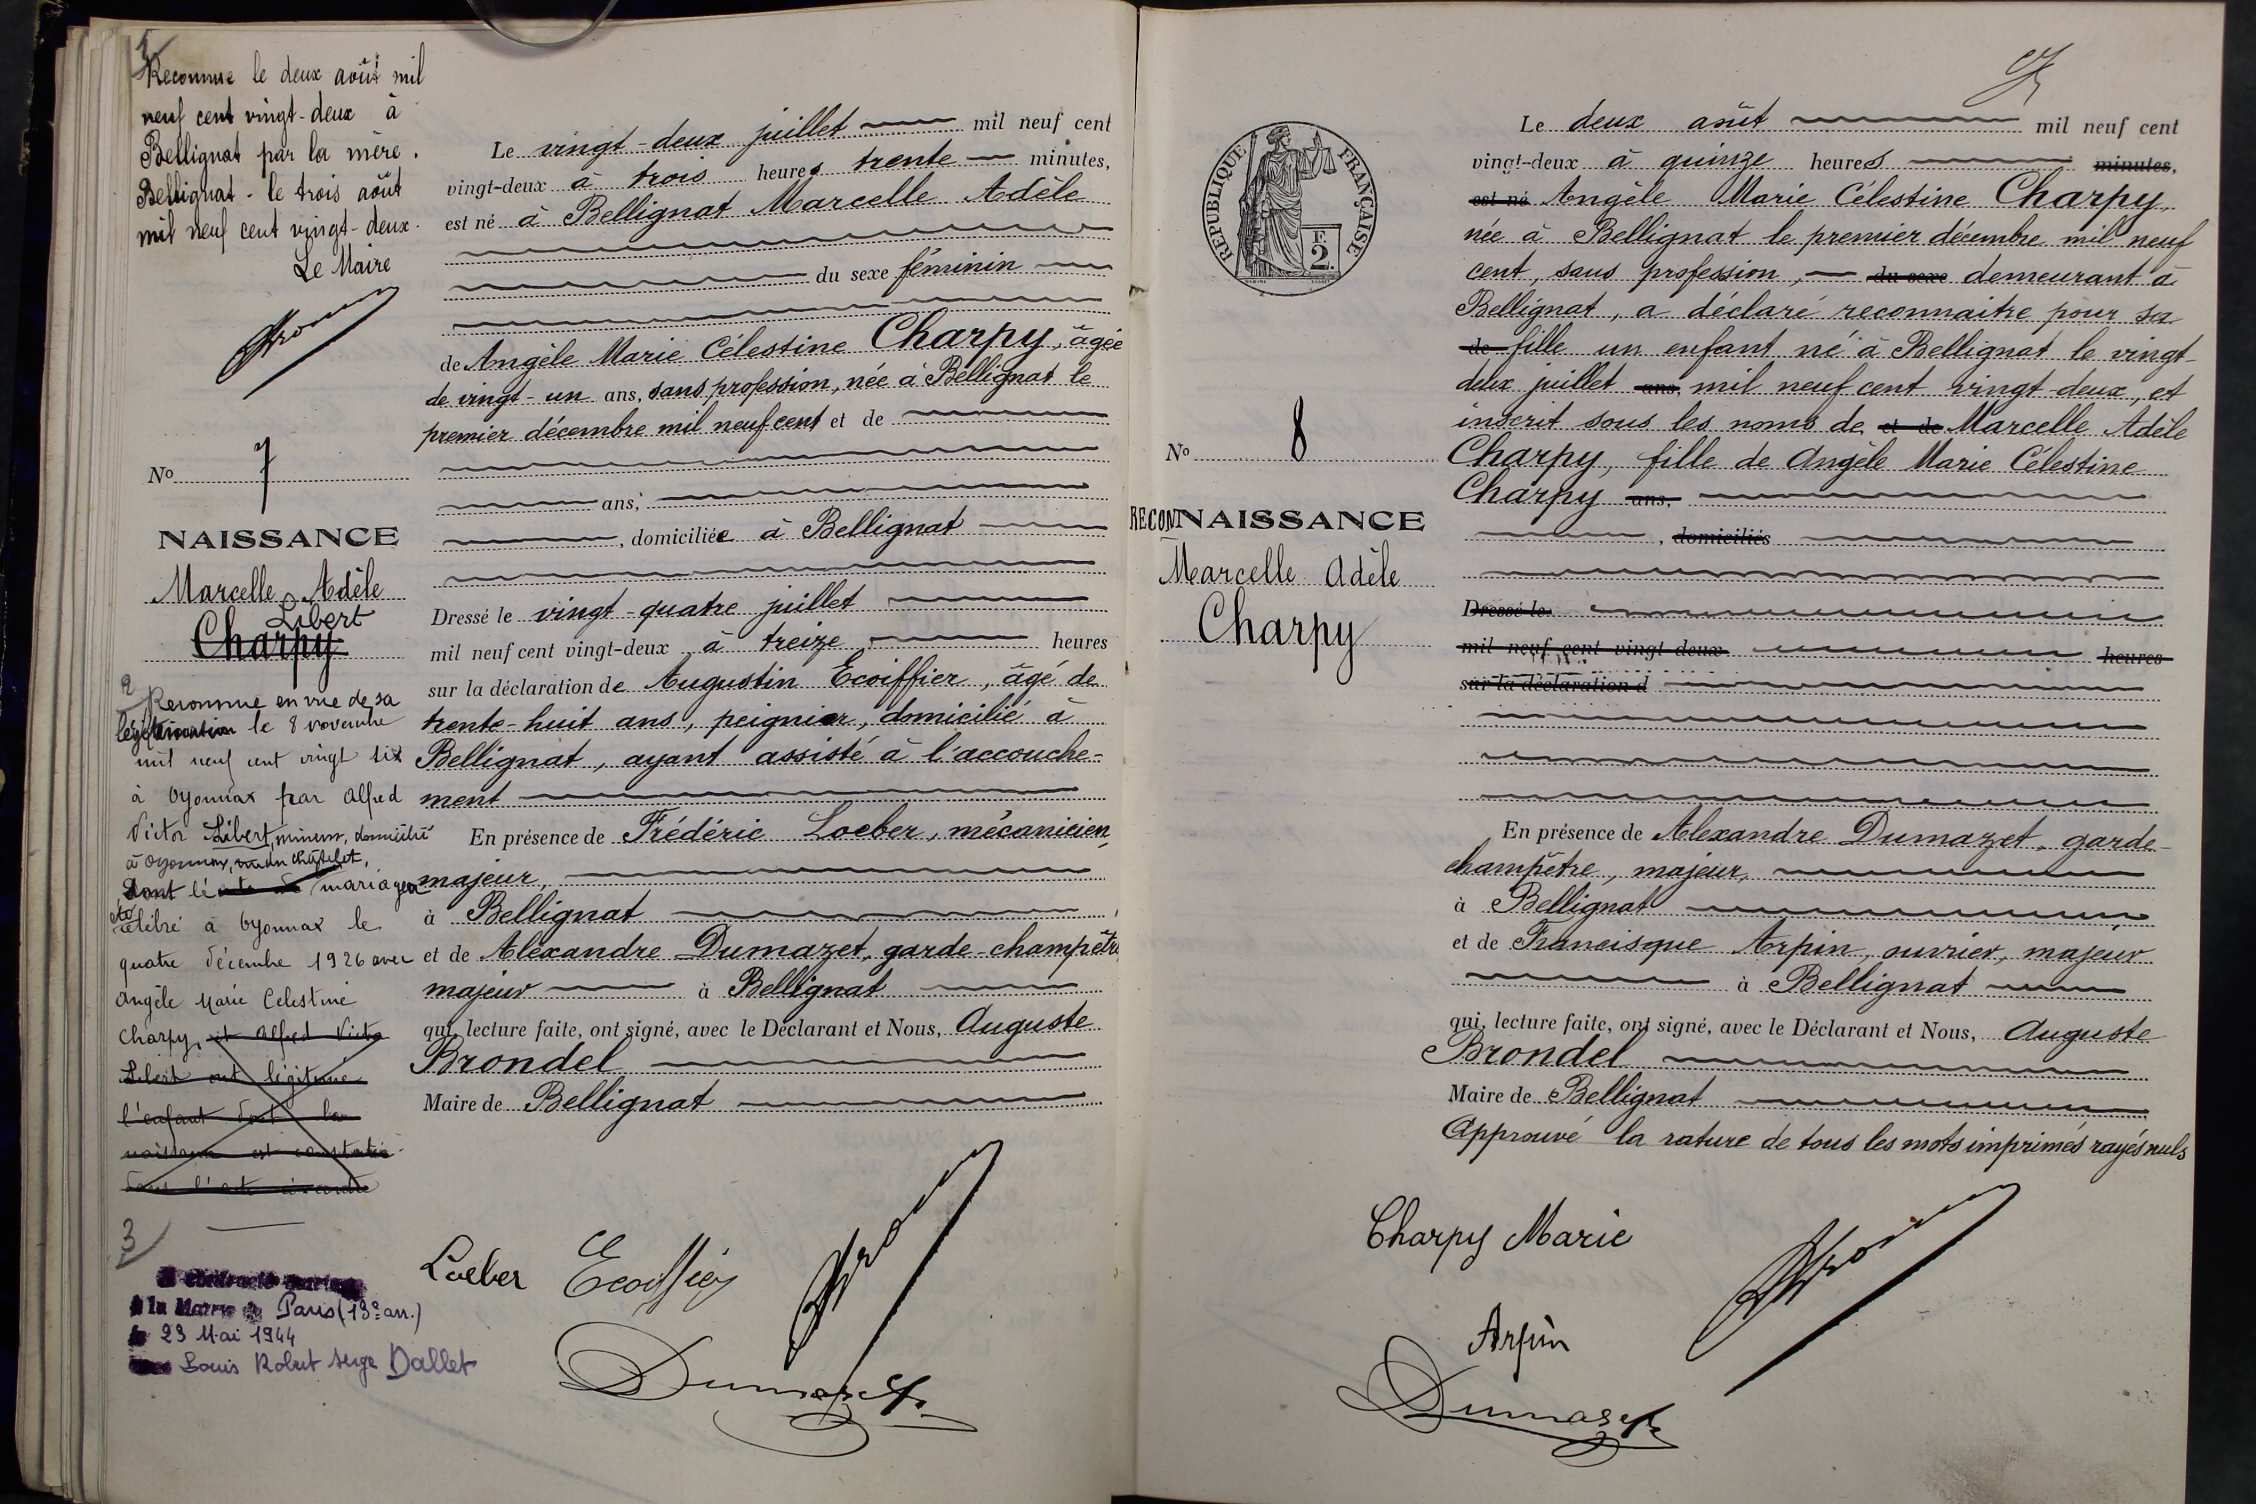 1
Reconnue le deux août mil
neuf cent vingt-deux à
Bellignat par la mère.
Bellignat - le trois août
mil neuf cent vingt-deux.
Le Maire
No 7
NAISSANCE
Marcelle Adèle
Libert
Charpy
2
Reconnue en vue de sa
légitimation le 8 novembre
mil neuf cent vingt six
à Oyonnax par Alfred
Victor Libert, mineur, domicilié
à Oyonnax, rue du Châtelet,
Dont le mariage a
été
célébré à Oyonnax le
quatre décembre 1926 avec
Angèle Marie Célestine
Charpy, et Alfred Victor
Libert ont légitimé
l'enfant dont la
naissance est constatée
dans l'acte ci-contre
3
A contracté mariage
à la Mairie de Paris (13e arr.)
le 23 Mai 1944
avec Louis Robert Serge Dallet
Le vingt-deux juillet mil neuf cent
vingt-deux à trois heures trente minutes,
est né à Bellignat Marcelle Adèle
du sexe féminin
de Angèle Marie Célestine Charpy, âgée
de vingt-un ans, sans profession, née à Bellignat le
premier décembre mil neuf cent et de
ans,
, domiciliée à Bellignat
Dressé le vingt-quatre juillet
mil neuf cent vingt-deux à treize heures
sur la déclaration de Augustin Ecoiffier, âgé de
trente-huit ans, peignier, domicilié à
Bellignat, ayant assisté à l'accouche-
ment
En présence de Frédéric Loeber, mécanicien,
majeur,
à Bellignat
et de Alexandre Dumazet, garde-champêtre
majeur à Bellignat
qui, lecture faite, ont signé, avec le Déclarant et Nous, Auguste
Brondel
Maire de Bellignat
Loeber Ecoiffier
Dumazet
RÉPUBLIQUE FRANÇAISE
F.
2
No 8
RECONNAISSANCE
Marcelle Adèle
Charpy
Le deux août mil neuf cent
vingt-deux à quinze heures minutes,
est né Angèle Marie Célestine Charpy,
née à Bellignat le premier décembre mil neuf
cent, sans profession, du sexe demeurant à
Bellignat, a déclaré reconnaitre pour sa
de fille un enfant né à Bellignat le vingt-
deux juillet ans, mil neuf cent vingt-deux, et
inscrit sous les noms de et de Marcelle Adèle
Charpy, fille de Angèle Marie Célestine
Charpy ans,
, domiciliés
Dressé le
mil neuf cent vingt-deux heures
sur la déclaration d
En présence de Alexandre Dumazet, garde-
champêtre, majeur,
à Bellignat
et de Francisque Arpin, ouvrier, majeur
à Bellignat
qui, lecture faite, ont signé, avec le Déclarant et Nous, Auguste
Brondel
Maire de Bellignat
Approuvé la rature de tous les mots imprimés rayés nuls
Charpy Marie
Arpin
Dumazet